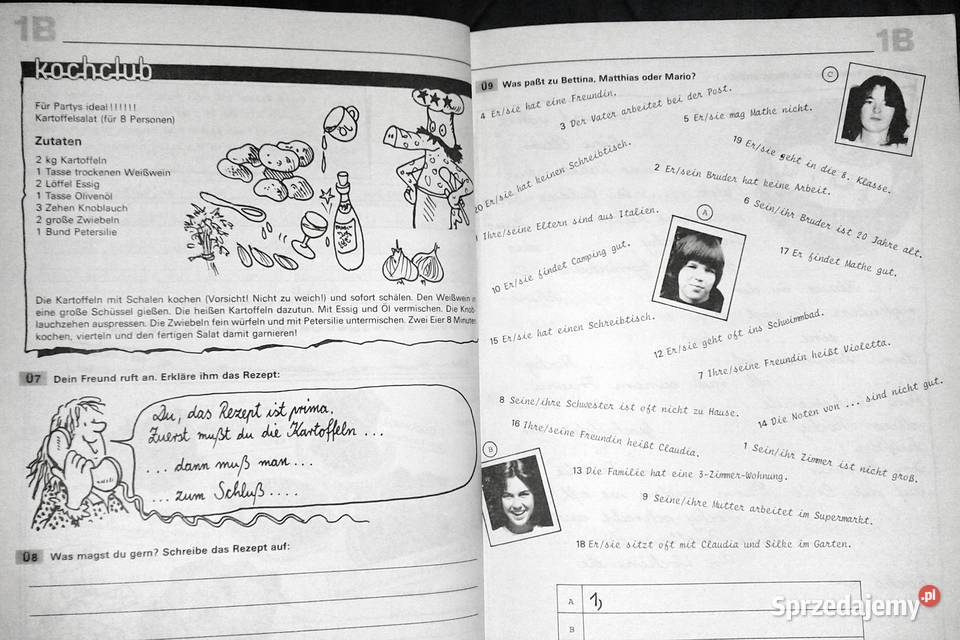 1B
kochclub
Für Partys ideal !!!!!!
Kartoffelsalat (für 8 Personen)
Zutaten
2 kg Kartoffeln
1 Tasse trockenen Weißwein
2 Löffel Essig
1 Tasse Olivenöl
3 Zehen Knoblauch
2 große Zwiebeln
1 Bund Petersilie
Die Kartoffeln mit Schalen kochen (Vorsicht! Nicht zu weich!) und sofort schälen. Den Weißwein in
eine große Schüssel gießen. Die heißen Kartoffeln dazutun. Mit Essig und Öl vermischen. Die Knob-
lauchzehen auspressen. Die Zwiebeln fein würfeln und mit Petersilie untermischen. Zwei Eier 8 Minuten
kochen, vierteln und den fertigen Salat damit garnieren!
Ü7 Dein Freund ruft an. Erkläre ihm das Rezept:
Du, das Rezept ist prima.
Zuerst mußt du die Kartoffeln ...
... dann muß man ...
... zum Schluß ....
Ü8 Was magst du gern? Schreibe das Rezept auf:
1B
Ü9 Was paßt zu Bettina, Matthias oder Mario?
C
4 Er/sie hat eine Freundin.
3 Der Vater arbeitet bei der Post.
5 Er/sie mag Mathe nicht.
19 Er/sie geht in die 8. Klasse.
20 Er/sie hat keinen Schreibtisch.
2 Er/sein Bruder hat keine Arbeit.
6 Sein/ihr Bruder ist 20 Jahre alt.
Ihre/seine Eltern sind aus Italien.
A
17 Er findet Mathe gut.
10 Er/sie findet Camping gut.
15 Er/sie hat einen Schreibtisch.
12 Er/sie geht oft ins Schwimmbad.
7 Ihre/seine Freundin heißt Violetta.
8 Seine/ihre Schwester ist oft nicht zu Hause.
14 Die Noten von ... sind nicht gut.
16 Ihre/seine Freundin heißt Claudia.
1 Sein/ihr Zimmer ist nicht groß.
B
13 Die Familie hat eine 3-Zimmer-Wohnung.
9 Seine/ihre Mutter arbeitet im Supermarkt.
18 Er/sie sitzt oft mit Claudia und Silke im Garten.
A 1)
B
Sprzedajemy.pl